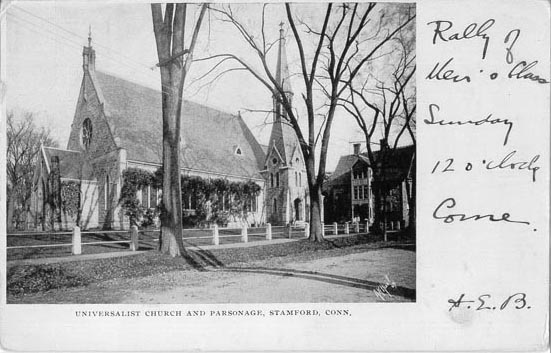 Rally of
Men's Class
Sunday
12 o'clock
Come.
A. E. B.
UNIVERSALIST CHURCH AND PARSONAGE, STAMFORD, CONN,